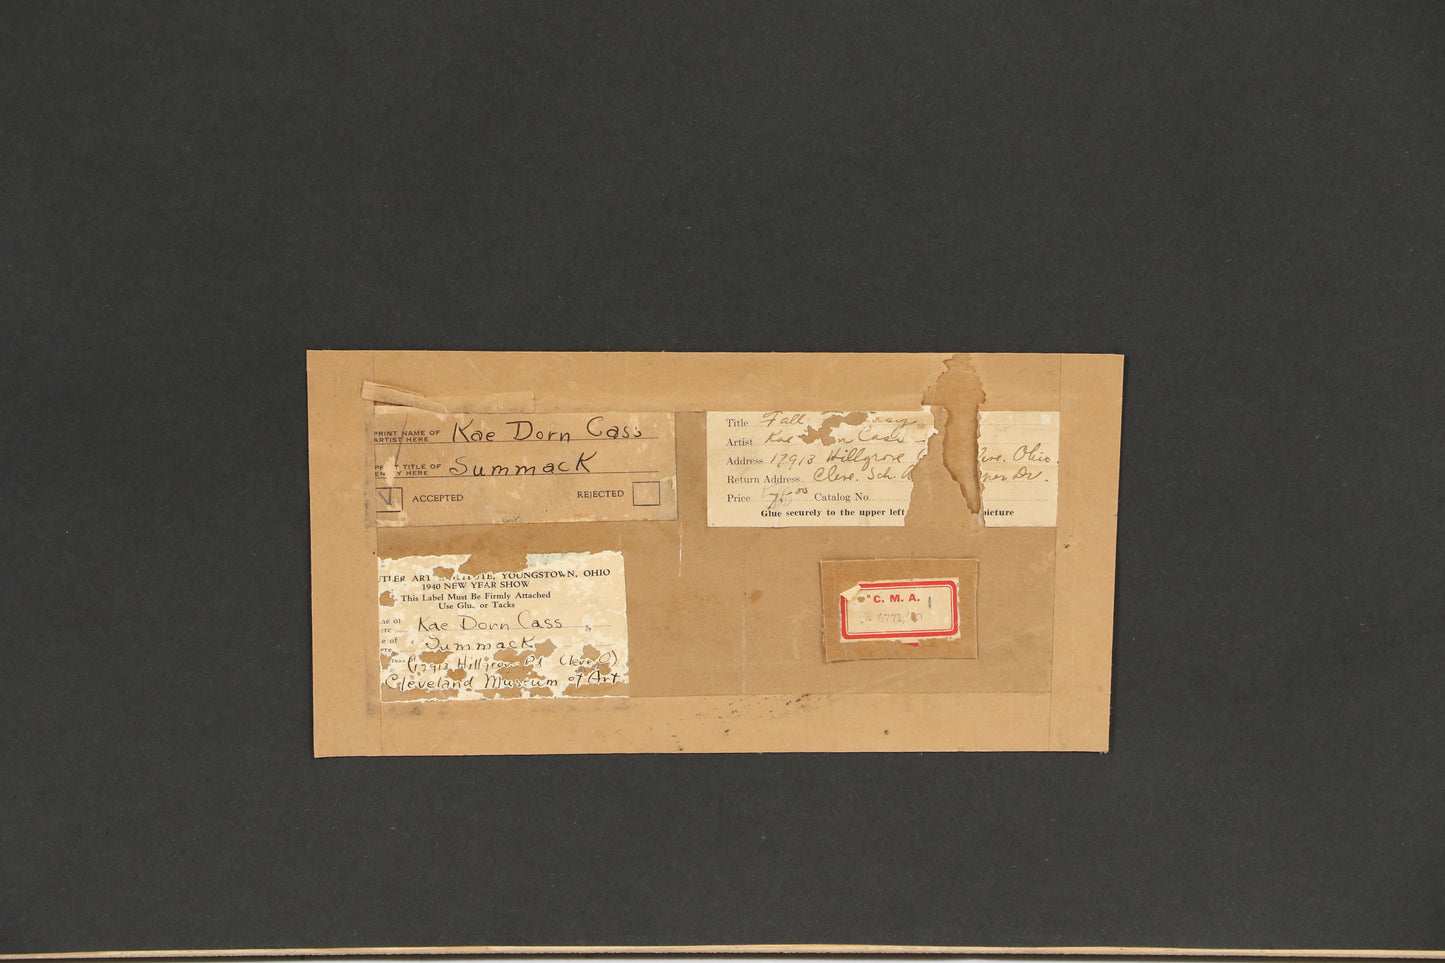 PRINT NAME OF
ARTIST HERE Kae Dorn Cass
TITLE OF
HERE Summack
ACCEPTED REJECTED
Title Fall
Artist Kae Cass
Address 17913 Hillgrove Ohio.
Return Address Cleve. Sch. Dr.
Price Catalog No.
Glue securely to the upper left picture
TLER ART TUTE, YOUNGSTOWN, OHIO
1940 NEW YEAR SHOW
This Label Must Be Firmly Attached
Use Glue or Tacks
Kae Dorn Cass
Summack
(17913 Hillgrove Rd Cleve O)
Cleveland Museum of Art
C. M. A.